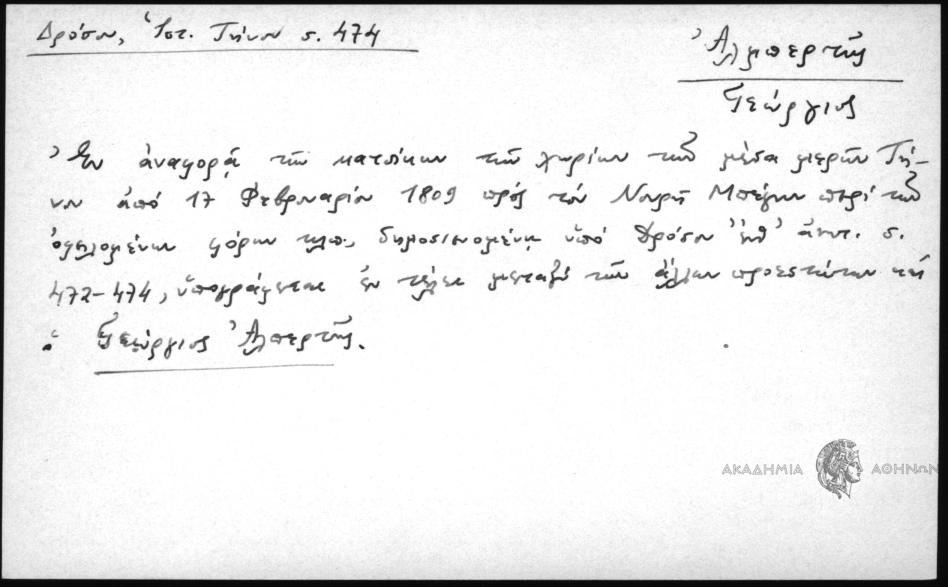 Δρόσου, Ἱστ. Τήνου σ. 474
Ἀλμπερτῆς
Γεώργιος
Ἐν ἀναφορᾷ τῶν κατοίκων τῶν χωρίων τῶν μέσα μερῶν Τή-
νου ἀπό 17 Φεβρουαρίου 1809 πρός τόν Νουρῆ Μπέγην περί τῶν
ὀφειλομένων φόρων κλπ., δημοσιευομένῃ ὑπό Δρόσου ἔνθ' ἀνωτ. σ.
472-474, ὑπογράφεται ἐν τέλει μεταξύ τῶν ἄλλων προεστώτων καί
ὁ Γεώργιος Ἀλπερτῆς.
ΑΚΑΔΗΜΙΑ ΑΘΗΝΩΝ